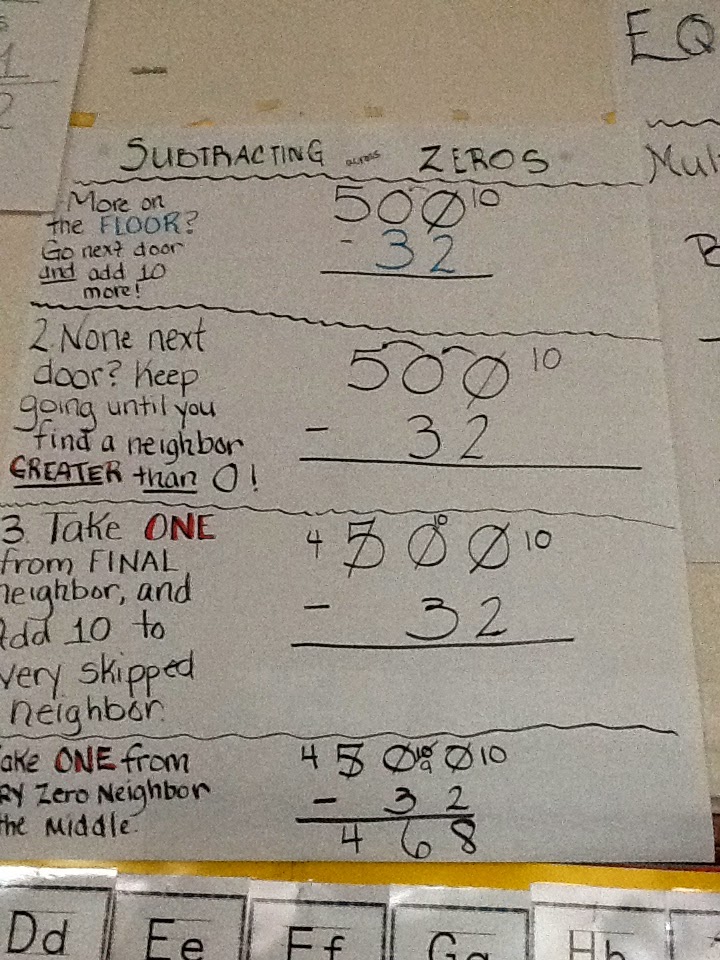 SUBTRACTING across ZEROS
More on
the FLOOR?
Go next door
and add 10
more!
500 10
- 32
2. None next
door? Keep
going until you
find a neighbor
GREATER than 0!
500 10
- 32
3. Take ONE
from FINAL
neighbor, and
add 10 to
very skipped
neighbor.
4 5 0 10 0 10
- 32
ake ONE from
RY Zero Neighbor
the Middle.
4 5 0 10 9 0 10
- 32
468
EQ
Mul
B
1
2
Dd
Ee
Ff
Gg
Hh